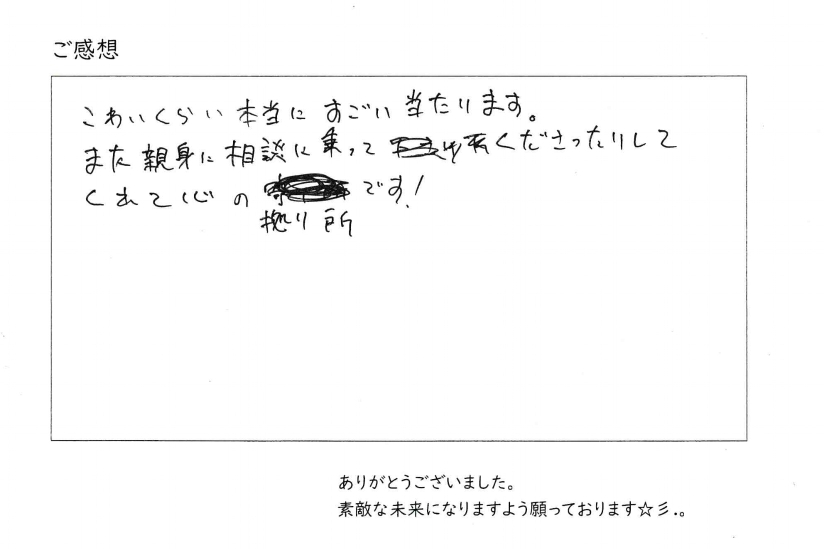 ご感想
こわいくらい本当にすごい当たります。
また親身に相談に乗って くださったりして
くれて心の です!
拠り所
ありがとうございました。
素敵な未来になりますよう願っております☆彡.。